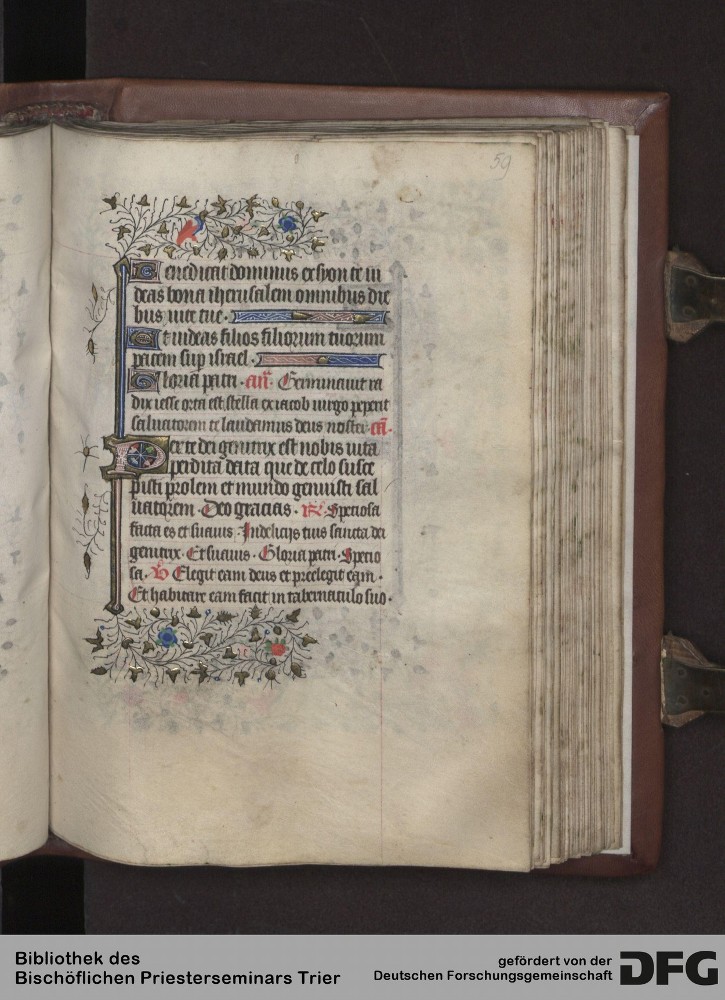 59
Benedicat dominus ex syon te ut ui
deas bona iherusalem omnibus die
bus uite tue.
Et uideas filios filiorum tuorum
pacem sup israel.
Gloria patri. añ. Germinauit ra
dix iesse orta est stella ex iacob uirgo peperit
saluatorem te laudamus deus noster. ca.
Per te dei genitrix est nobis uita
perdita data que de celo susce
pisti prolem et mundo genuisti sal
uatorem. Deo gracias. R. Speciosa
facta es et suauis. In delicijs tuis sancta dei
genitrix. Et suauis. Gloria patri. Specio
sa. V Elegit eam deus et preelegit eam.
Et habitare eam facit in tabernaculo suo.
Bibliothek des
Bischöflichen Priesterseminars Trier
gefördert von der
Deutschen Forschungsgemeinschaft
DFG